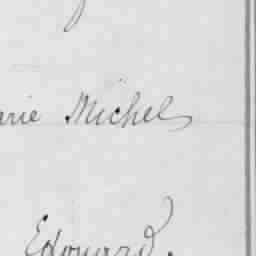 arie Michel
Edouard.